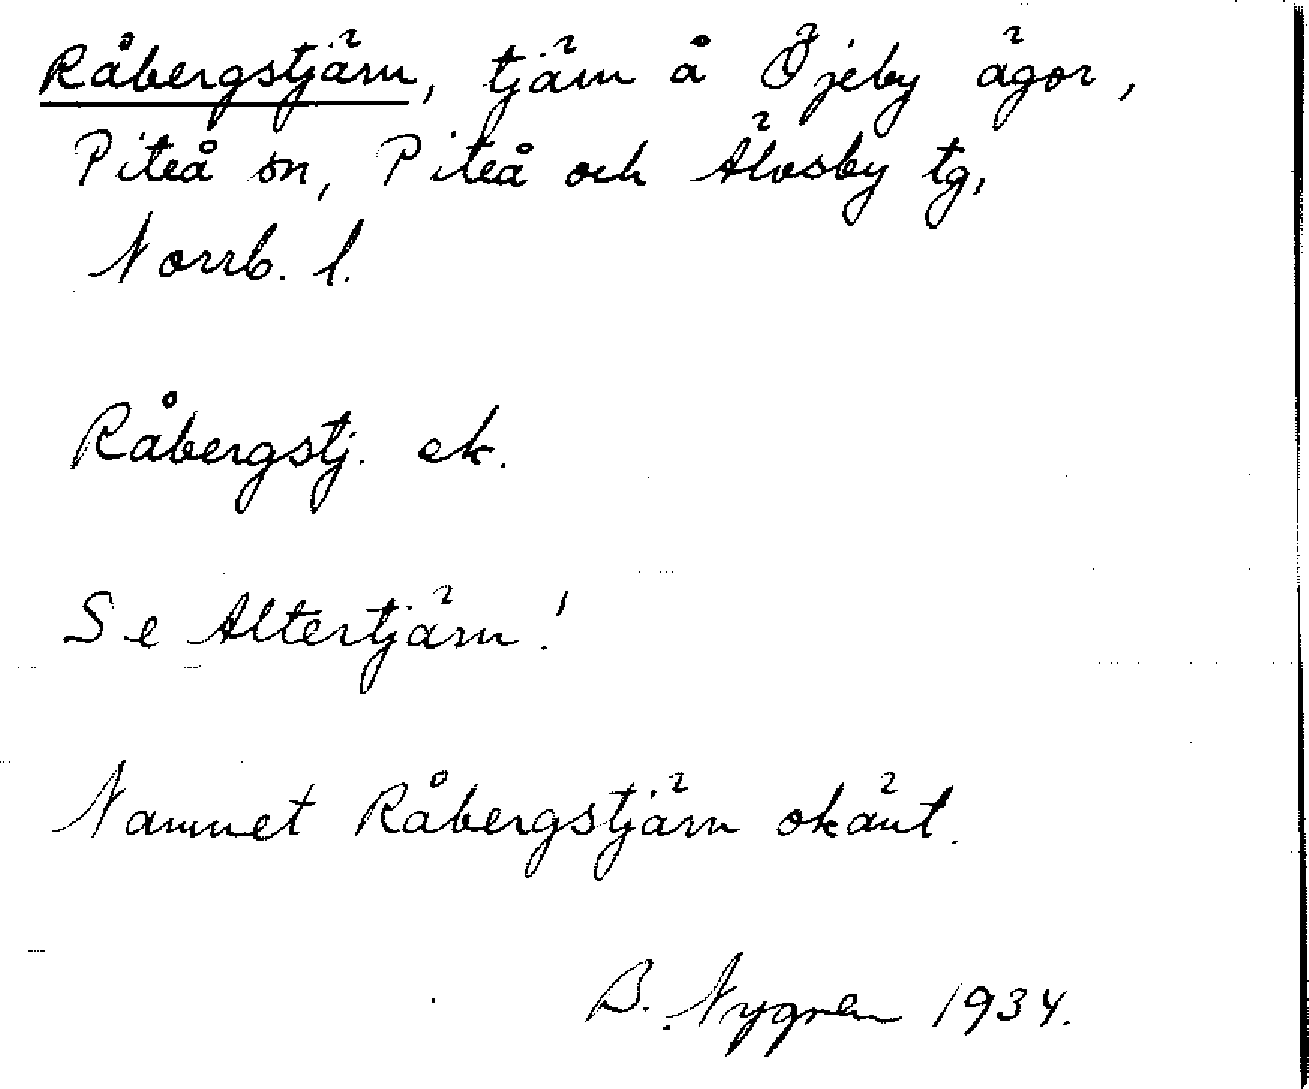 Råbergstjärn, tjärn å Öjeby ägor,
Piteå sn, Piteå och Älvsby tg,
Norrb. l.
Råbergstj. ek.
Se Altertjärn!
Namnet Råbergstjärn okänt.
B. Nygren 1934.